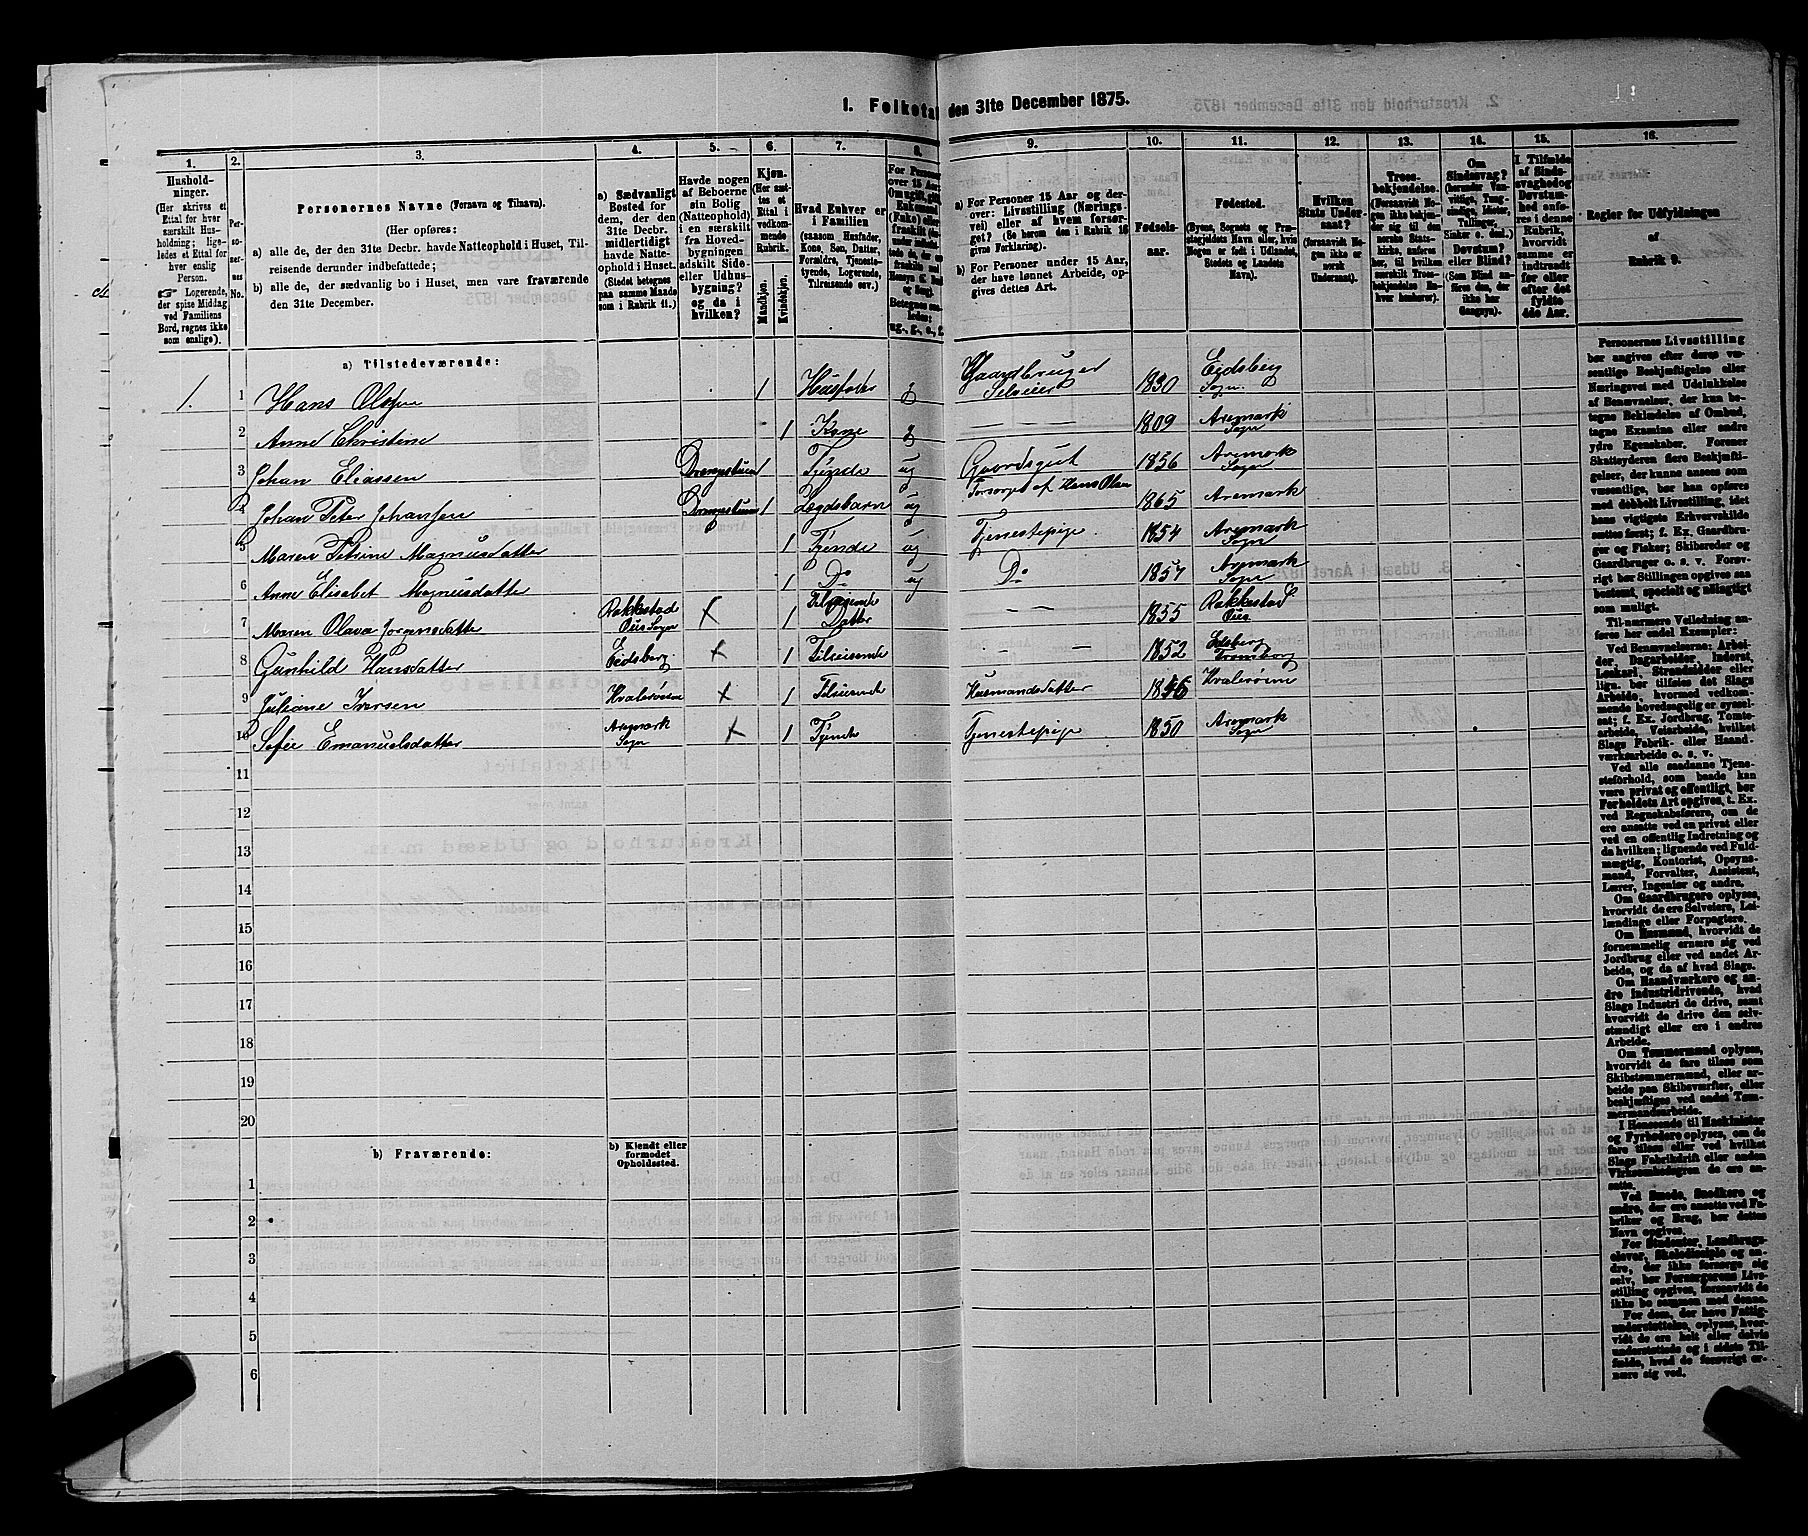 1. Folketal den 31te December 1875.
1. 2. 3. 4. 5. 6. 7. 8. 9. 10. 11. 12. 13. 14. 15. 16.
Hushold-
ninger.
(Her skrives et
Ettal for hver
særskilt Hus-
holdning; lige-
ledes et Ettal for
hver enslig
Person.
Logerende,
der spise Middag
ved Familiens
Bord, regnes ikke
som enslige).
Per-
so-
ner-
nes
No.
Personernes Navne (Fornavn og Tilnavn).
(Her opføres:
a) alle de, der den 31te Decbr. havde Natteophold i Huset, Til-
reisende derunder indbefattede;
b) alle de, der sædvanlig bo i Huset, men vare fraværende
den 31te December.
a) Sædvanligt
Bosted for
dem, der den
31te Decbr.
midlertidigt
havde Natte-
ophold i Huset.
(Stedet betegnes
paa samme Maade
som i Rubrik 11.)
Havde nogen
af Beboerne
sin Bolig
(Natteophold)
i en særskilt
fra Hoved-
bygningen
adskilt Side-
eller Udhus-
bygning?
og da i
hvilken?
Kjøn.
(Her sæt-
tes et
Ettal i
vedkom-
mende
Rubrik.
Mandkjøn.
Kvindekjøn.
Hvad Enhver er
i Familien
(saasom Husfader,
Kone, Søn, Datter,
Forældre, Tjeneste-
tyende, Logerende,
Tilreisende osv.)
a) For Personer 15 Aar og der-
over: Livsstilling (Nærings-
vei) eller af hvem forsør-
get? (Se herom den i Rubrik 16
givne Forklaring).
b) For Personer under 15 Aar,
der have lønnet Arbeide, op-
gives dettes Art.
Fødsels-
aar.
Fødested.
(Byens, Sognets og Præ-
stegjeldets Navn eller, hvis
Nogen er født i Udlandet,
Stedets og Landets
Navn).
Hvilken
Stats Under-
saat?
(forsaavidt No-
gen ikke er
norsk
Undersaat).
Troes-
bekjendelse.
(Forsaavidt No-
gen ikke bekjen-
der sig til den
norske Stats-
kirke, anføres
her, til hvilken
særskilt Troes-
bekjendelse En-
hver henhører).
Om
Sindssvag?
(herunder Van-
vittige, Tung-
sindige, Idioter,
Tullinger,
Sinker o. desl.)
Døvstum?
eller Blind?
(Som Blind an-
føres den, der
ikke har
Gangsyn).
I Tilfælde
af Sinds-
svaghed og
Døvstum-
hed anfø-
res i denne
Rubrik,
hvorvidt
samme er
indtraadt
før eller
efter det
fyldte
4de Aar.
Regler for Udfyldningen
af
Rubrik 9.
a) Tilstedeværende:
1. 1 Hans Olsen 1 Husfader g Gaardbruger Selveier 1830 Eidsberg Sogn.
2 Anne Christine 1 Kone g — — — 1809 Aremark Sogn
3 Johan Eliassen Drengestuen 1 Tjende ug Gaardsgut 1856 Aremark Sogn
4 Johan Peter Johansen Drengestuen 1 Legdsbarn ug Forsørget af Hans Olsen 1865 Aremark
5 Maren Petrine Magnusdatter 1 Tjende ug Tjenestepige 1854 Aremark Sogn
6 Anne Elisabet Magnusdatter 1 Do ug Do 1857 Aremark Sogn
7 Maren Olava Jørgensdatter Rakkestad Øus Sogn X 1 Datter — — 1855 Rakkestad Øus
8 Gunhild Hansdatter Eidsberg. X 1 Tilreisende — — 1852 Edsberg Tromborg
9 Juliane Iversen Hvalerøine X 1 Tilreisende Husmandsdatter 1846 Hvalerøine
10 Sofie Emanuelsdatter Aremark Sogn X 1 Tjende Tjenestepige 1850 Aremark Sogn
11
12
13
14
15
16
17
18
19
20
b) Fraværende:
b) Kjendt eller
formodet
Opholdssted.
1
2
3
4
5
6
Personernes Livsstilling
bør angives efter deres væ-
sentlige Beskjæftigelse eller
Næringsvei med Udelukkelse
af Benævnelser, der kun be-
tegne Beklædelse af Ombud,
tagne Examina eller andre
ydre Egenskaber. Forener
Skatteyderen flere Beskjæfti-
gelser, der kunne ansees som
væsentlige, bør han opføres
med dobbelt Livsstilling, idet
hans vigtigste Erhvervskilde
sættes først; f. Ex. Gaardbru-
ger og Fisker; Skibsreder og
Gaardbruger o. s. v. Forøv-
rigt bør Stillingen opgives saa
bestemt, specielt og nøiagtigt
som muligt.
Til nærmere Veiledning an-
føres her endel Exempler:
Ved Benævnelserne: Arbei-
der, Dagarbeider, Inderst
Løskarl, Strandsidder eller
lign. bør tilføies det Slags
Arbeide, hvormed vedkom-
mende hovedsagelig er syssel-
sat; f. Ex. Jordbrug, Tomte-
arbeide, Veiarbeide, hvilket
Slags Fabrik- eller Haand-
værksarbeide o. s. v.
Ved alle saadanne Tjene-
steforhold, som baade kan
være privat og offentligt, bør
Forholdets Art opgives, t. Ex.
ved Regnskabsførere, om de
ere ansatte ved en privat eller
ved en offentlig Indretning og
da hvilken; lignende ved Fuld-
mægtig, Kontorist, Opsyns-
mand, Forvalter, Assistent,
Lærer, Ingeniør og andre.
Om Gaardbrugere oplyses,
hvorvidt de ere Selveiere, Lei-
lændinge eller Forpagtere.
Om Husmænd, hvorvidt de
fornemmelig ernære sig ved
Jordbrug eller ved andet Ar-
beide, og da af hvad Slags.
Om Haandværkere og an-
dre Industridrivende, hvad
Slags Industri de drive, samt
hvorvidt de drive den selv-
stændigt eller ere i andres
Arbeide.
Om Tømmermænd oplyses,
hvorvidt de fare tilsøs som
Skibstømmermænd, eller ar-
beide paa Skibsværfter, eller
beskjæftiges ved andet Tøm-
mermandsarbeide.
I Henseende til Maskinister
og Fyrbødere oplyses, om de
fare tilsøs eller ved hvilket
Slags Fabrikdrift eller anden
Virksomhed de ere an-
satte.
Ved Smede, Snedkere og
andre, der ere ansatte ved Fa-
briker og Brug, bør dettes
Navn opgives.
For Studenter, Landbrugs-
elever, Skoledisciple og an-
dre, der ikke forsørge sig
selv, bør Forsørgerens Livs-
stilling opgives, forsaavidt de
ikke bo sammen med denne.
For dem, der have Fattig-
understøttelse, oplyses, hvor-
vidt de ere helt eller delvis
understøttede og i sidste Til-
fælde, hvad de forøvrigt er-
nære sig ved.